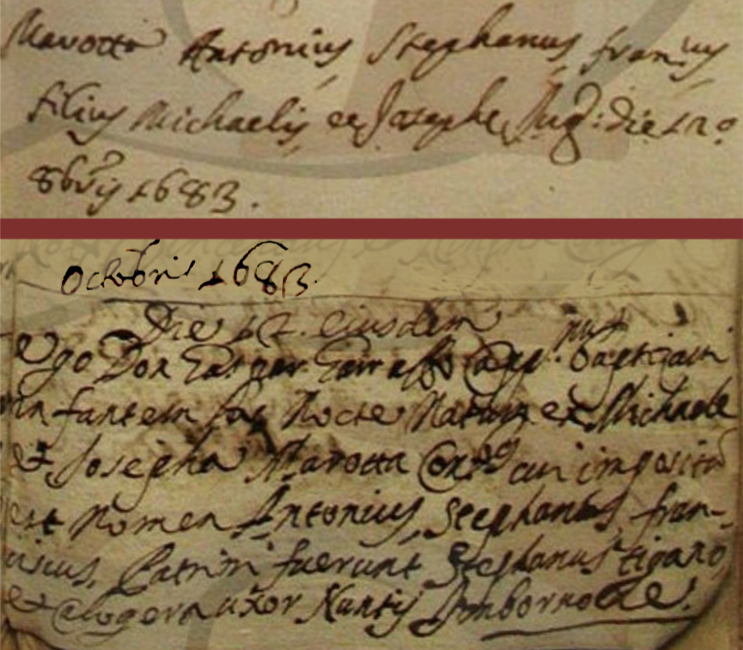 Marotta Antonius Stephanus Franᶜᵘˢ
filius Michaelis et Josephe Jug: die 12º
8bris 1683.
Octobris 1683.
Die 12. eiusdem
Ego Don Gaspar Capp.ⁿᵘˢ baptizavi
infantem hac Nocte Natum ex Michaele
et Josepha Marotta Con: cui impositū
est Nomen Antonius, Stephanus, Fran-
ciscus, Patrini fuerunt Stephanus
et Calogera uxor Nuntij